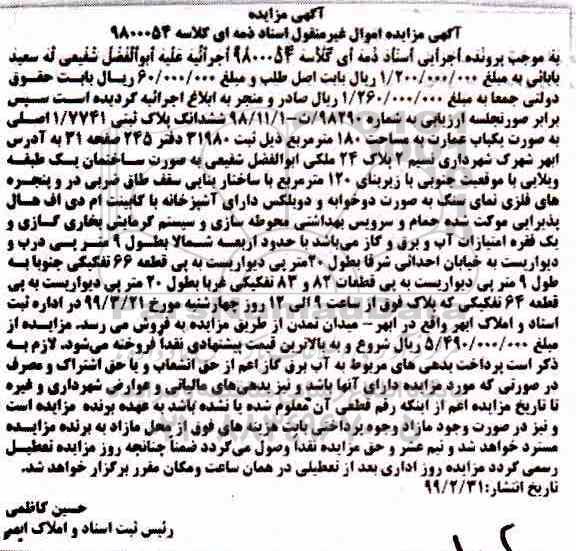 آگهی مزایده
آگهی مزایده اموال غیرمنقول اسناد ذمه ای کلاسه ۹۸۰۰۰۵۴
به موجب پرونده اجرایی اسناد ذمه ای کلاسه ۹۸۰۰۰۵۴ اجرائیه علیه ابوالفضل شفیعی له سعید
بابائی به مبلغ ۱/۲۰۰/۰۰۰/۰۰۰ ریال بابت اصل طلب و مبلغ ۶۰/۰۰۰/۰۰۰ ریـال بابت حقـوق
دولتی جمعا به مبلغ ۱/۲۶۰/۰۰۰/۰۰۰ ریال صادر و منجر به ابلاغ اجرائیه گردیده اسـت سـپس
برابر صورتجلسه ارزیابی به شماره ۹۸۲۹۰-ت-۹۸/۱۱/۱ ششدانگ پلاک ثبتی ۱/۷۷۴۱ اصلی
به صورت یکباب عمارت به مساحت ۱۸۰ مترمربع ذیل ثبت ۳۱۹۸۰ دفتر ۲۴۵ صفحه ۳۱ به آدرس
ابهر شهرک شهرداری نسیم ۲ پلاک ۲۴ ملکی ابوالفضل شفیعی به صورت ساختمان یـک طبقـه
ویلایی با موقعیت جنوبی با زیربنای ۱۲۰ مترمربع با ساختار بنایی سقف طاق ضربی در و پنجـره
های فلزی نمای سنگ به صورت دوخوابه و دوبلکس دارای آشپزخانه با کابینت ام دی اف هـال
پذیرایی موکت شده حمام و سرویس بهداشتی محوطه سازی و سیستم گرمایش بخاری گـازی و
یک فقره امتیازات آب و برق و گاز می‌باشد با حدود اربعـه شمـالا بطـول ۹ متـر پـی درب و
دیواریست به خیابان احداثی شرقا بطول ۲۰متر پی دیواریست به پی قطعه ۶۶ تفکیکی جنوبا بـه
طول ۹ متر پی دیواریست به پی قطعات ۸۲ و ۸۳ تفکیکی غربا بطول ۲۰ متر پی دیواریست به پی
قطعه ۶۴ تفکیکی که پلاک فوق از ساعت ۹ الی ۱۲ روز چهارشنبه مورخ ۹۹/۳/۲۱ در اداره ثبت
اسناد و املاک ابهر واقع در ابهر - میدان تمدن از طریق مزایده به فروش می رسد. مزایـده از
مبلغ ۵/۴۹۰/۰۰۰/۰۰۰ ریال شروع و به بالاترین قیمت پیشنهادی نقداً فروخته می‌شود. لازم بـه
ذکر است پرداخت بدهی های مربوط به آب برق گاز اعم از حق انشعاب و یا حق اشتراک و مصرف
در صورتی که مورد مزایده دارای آنها باشد و نیز بدهی‌های مالیاتی و عوارض شهرداری و غیره
تا تاریخ مزایده اعم از اینکه رقم قطعی آن معلوم شده یا نشده باشد به عهده برنده مزایده است
و نیز در صورت وجود مازاد وجوه پرداختی بابت هزینه های فوق از محل مازاد به برنده مزایـده
مسترد خواهد شد و نیم عشر و حق مزایده نقداً وصول می‌گردد ضمناً چنانچه روز مزایده تعطیـل
رسمی گردد مزایده روز اداری بعد از تعطیلی در همان ساعت ومکان مقرر برگزار خواهد شد.
تاریخ انتشار:۹۹/۲/۳۱
حسین کاظمی
رئیس ثبت اسناد و املاک ابهر